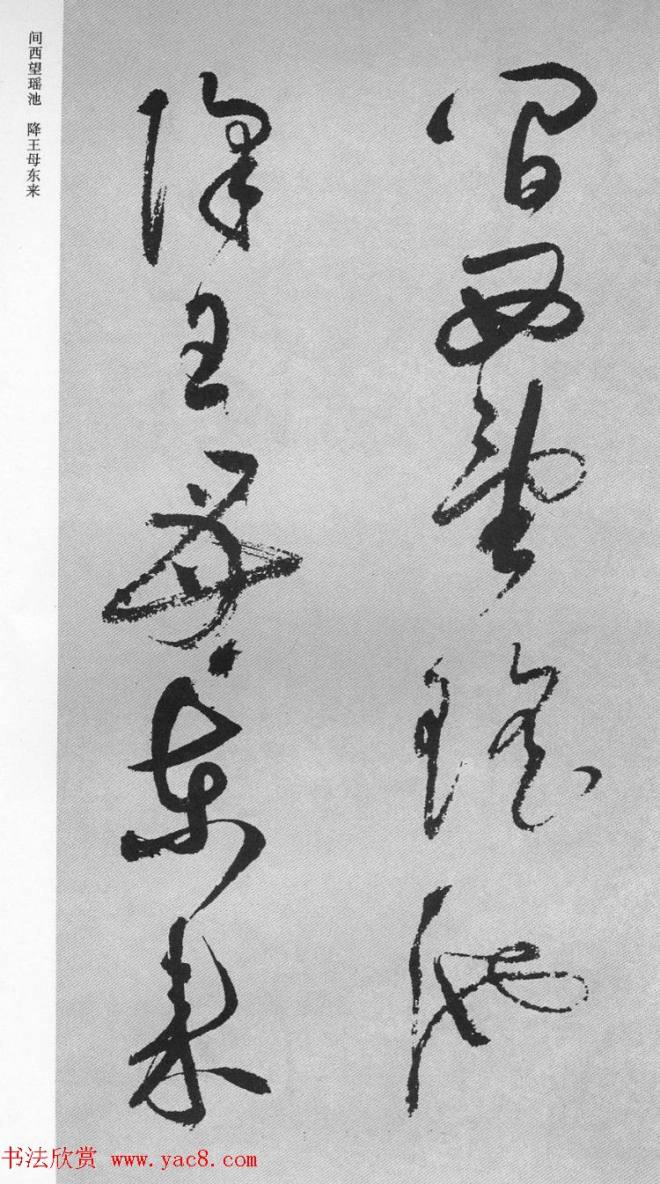 间西望瑶池 降王母东来
间西望瑶池
降王母东来
书法欣赏 www.yac8.com